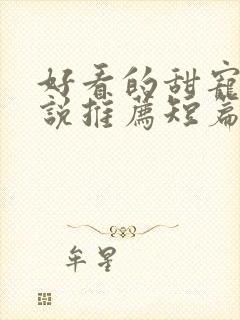 好看的甜宠
说推薦短篇
牟星